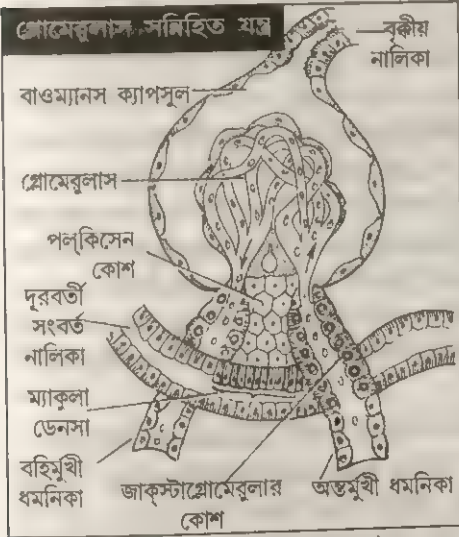 গ্লোমেরুলাস সন্নিহিত যন্ত্র
বৃক্কীয়
নালিকা
বাওম্যানস ক্যাপসুল
গ্লোমেরুলাস
পল্‌কিসেন
কোশ
দূরবর্তী
সংবর্ত
নালিকা
ম্যাকুলা
ডেনসা
বহির্মুখী
ধমনিকা
জাক্‌স্টাগ্লোমেরুলার
কোশ
অন্তর্মুখী ধমনিকা